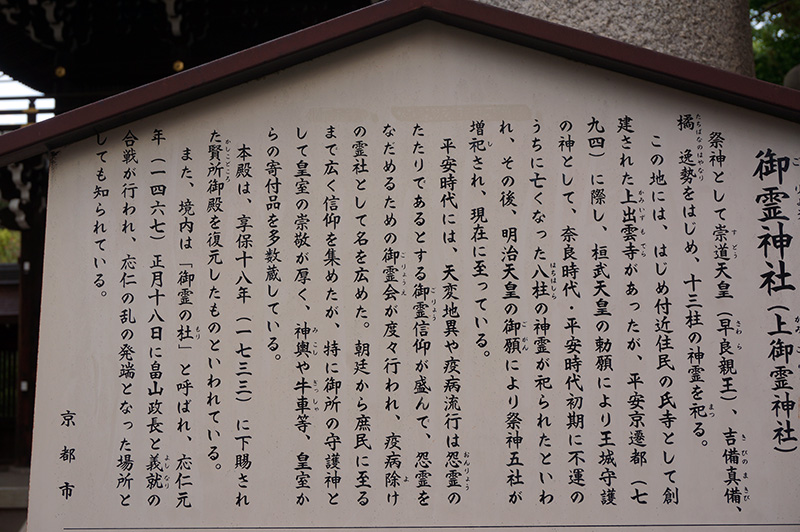 御霊神社（上御霊神社）
祭神として崇道天皇（早良親王）、吉備真備、
橘　逸勢をはじめ、十三柱の神霊を祀る。
この地には、はじめ付近住民の氏寺として創
建された上出雲寺があったが、平安京遷都（七
九四）に際し、桓武天皇の勅願により王城守護
の神として、奈良時代・平安時代初期に不運の
うちに亡くなった八柱の神霊が祀られたといわ
れ、その後、明治天皇の御願により祭神五社が
増祀され、現在に至っている。
平安時代には、天変地異や疫病流行は怨霊の
たたりであるとする御霊信仰が盛んで、怨霊を
なだめるための御霊会が度々行われ、疫病除け
の霊社として名を広めた。朝廷から庶民に至る
まで広く信仰を集めたが、特に御所の守護神と
して皇室の崇敬が厚く、神輿や牛車等、皇室か
らの寄付品を多数蔵している。
本殿は、享保十八年（一七三三）に下賜され
た賢所御殿を復元したものといわれている。
また、境内は「御霊の杜」と呼ばれ、応仁元
年（一四六七）正月十八日に畠山政長と義就の
合戦が行われ、応仁の乱の発端となった場所と
しても知られている。
京都市